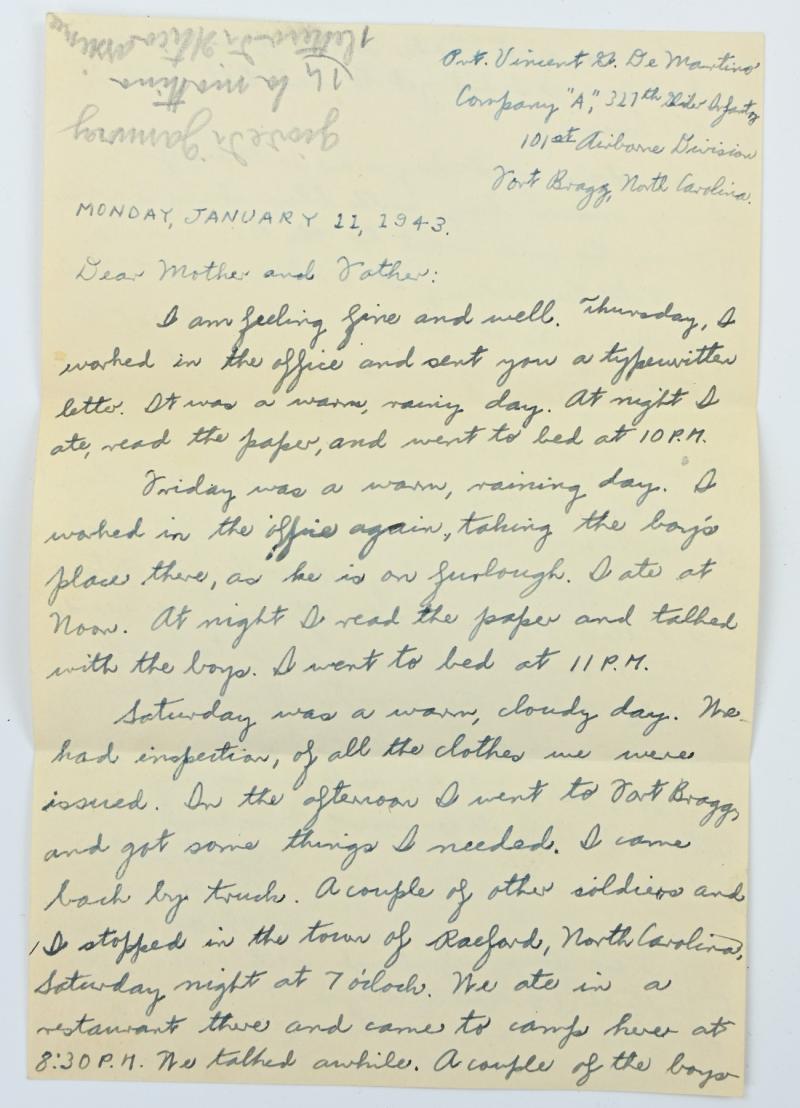 Pvt. Vincent G. De Martino
Company "A", 327th Glider Infantry
101st Airborne Division
Fort Bragg, North Carolina.
giovedi January
14 la mattina
1 lettera di
MONDAY, JANUARY 11, 1943.
Dear Mother and Father:
I am feeling fine and well. Thursday, I
worked in the office and sent you a typewritten
letter. It was a warm, rainy day. At night I
ate, read the paper, and went to bed at 10 P.M.
Friday was a warm, raining day. I
worked in the office again, taking the boy's
place there, as he is on furlough. I ate at
Noon. At night I read the paper and talked
with the boys. I went to bed at 11 P.M.
Saturday was a warm, cloudy day. We
had inspection, of all the clothes we were
issued. In the afternoon I went to Fort Bragg,
and got some things I needed. I came
back by truck. A couple of other soldiers and
I stopped in the town of Raeford, North Carolina,
Saturday night at 7 o'clock. We ate in a
restaurant there and came to camp here at
8:30 P.M. We talked awhile. A couple of the boys